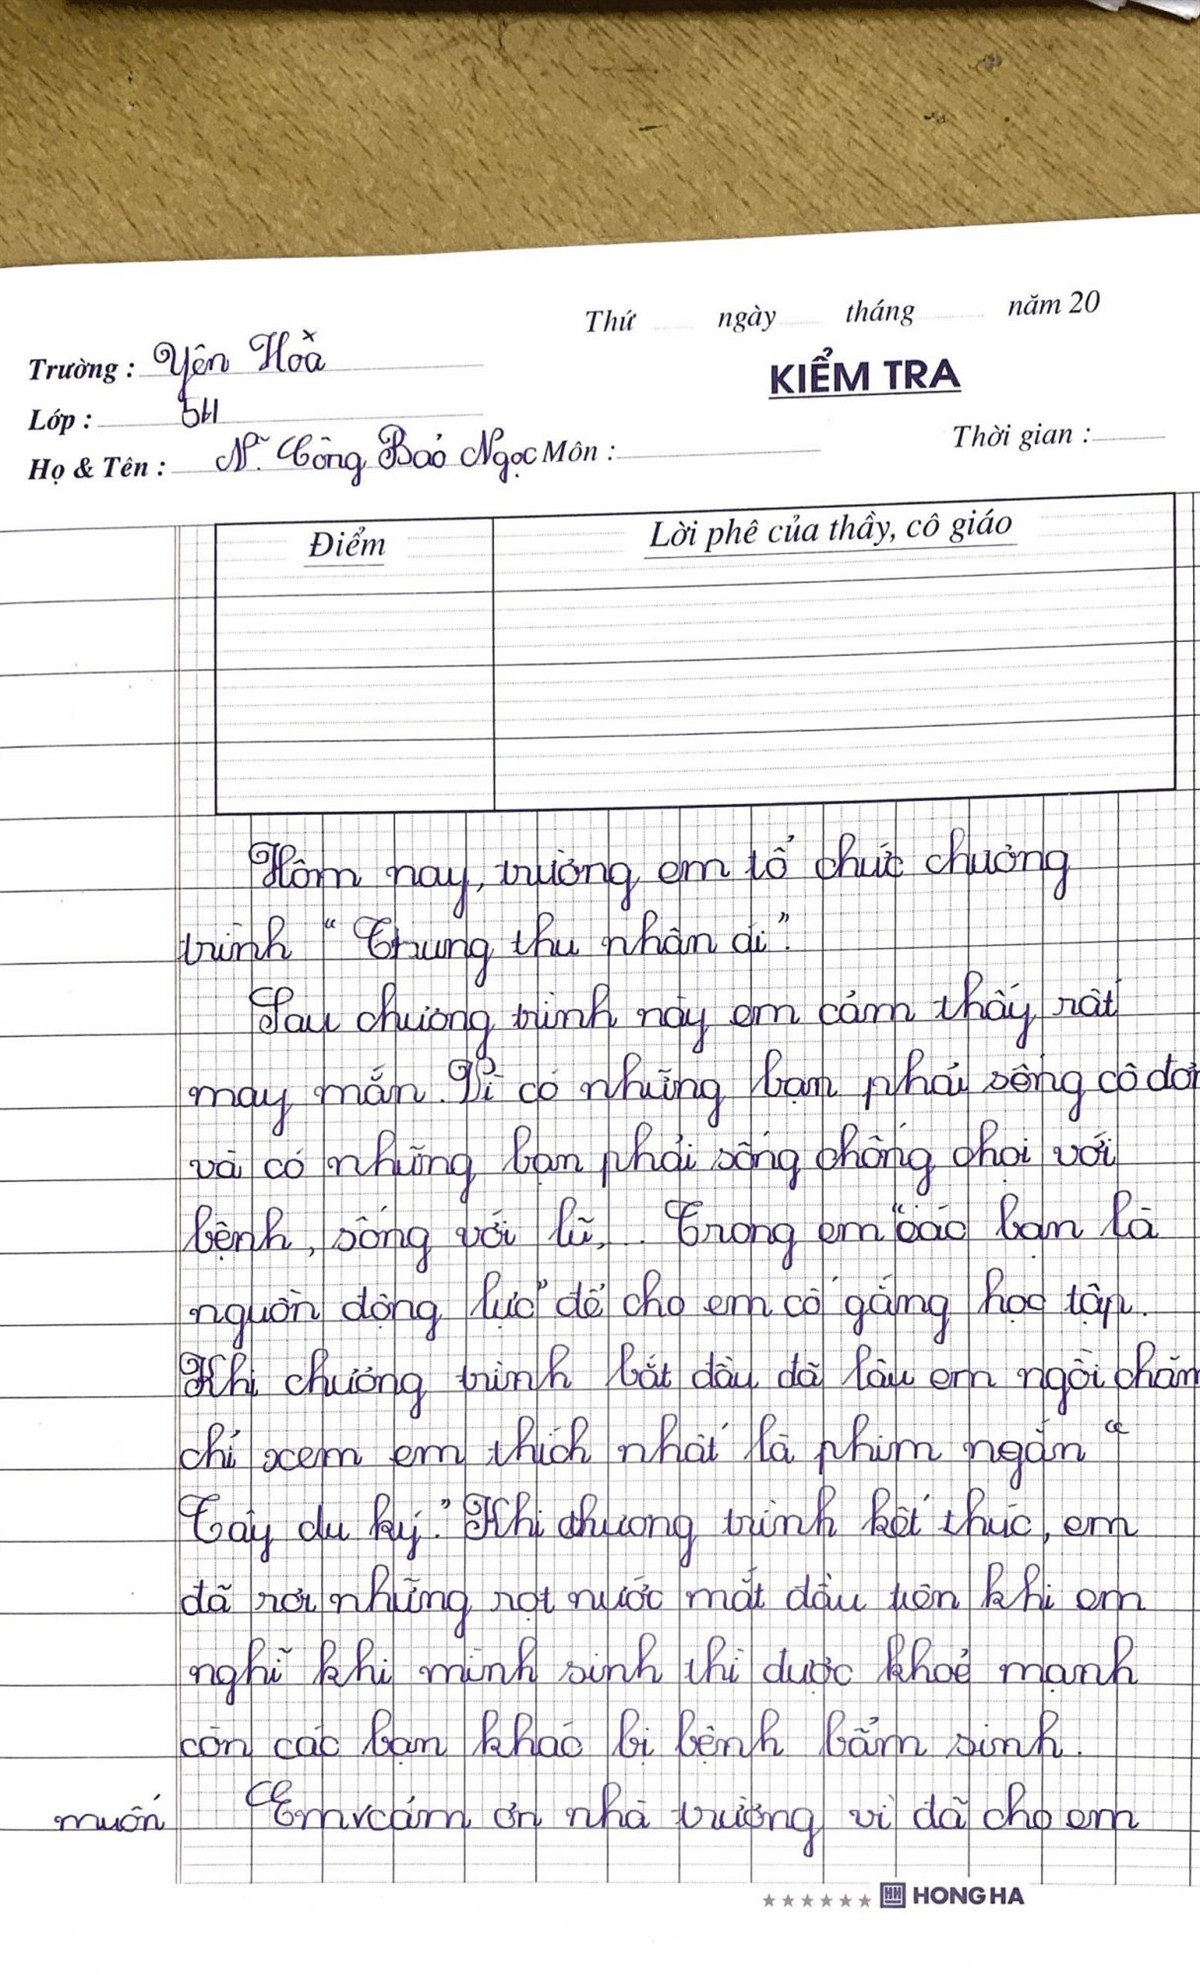 Thứ ngày tháng năm 20
Trường : Yên Hoà
KIỂM TRA
Lớp : 5H
Thời gian :
Họ & Tên : N. Công Bảo Ngọc Môn :
Điểm Lời phê của thầy, cô giáo
Hôm nay, trường em tổ chức chương
trình “Trung thu nhân ái”.
Sau chương trình này em cảm thấy rất
may mắn. Vì có những bạn phải sống cô đơn
và có những bạn phải sống chống chọi với
bệnh, sống với lũ,.. Trong em “các bạn là
nguồn động lực” để cho em cố gắng học tập.
Khi chương trình bắt đầu đã lâu em ngồi chăm
chỉ xem em thích nhất là phim ngắn “
Tây du ký.” Khi chương trình kết thúc, em
đã rơi những rọt nước mắt đầu tiên khi em
nghĩ khi mình sinh thì được khoẻ mạnh
còn các bạn khác bị bệnh bẩm sinh.
muốn Em cảm ơn nhà trường vì đã cho em
HONG HA